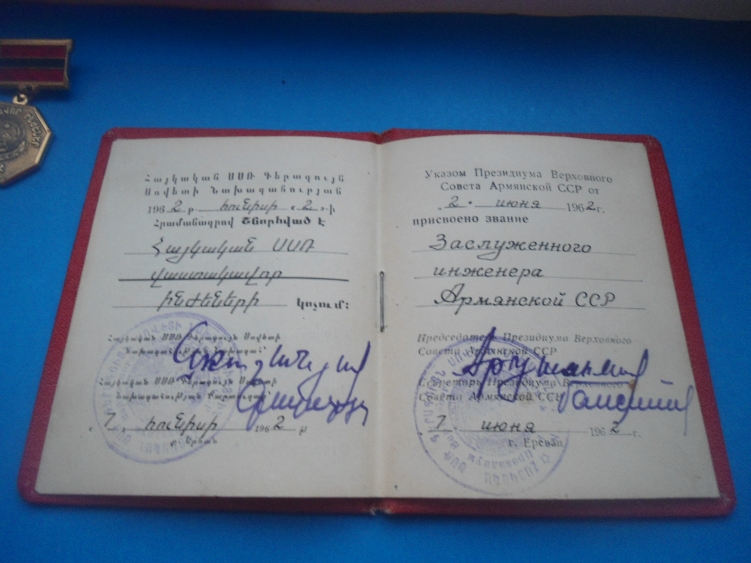 Հայկական ՍՍՌ Գերագույն
Սովետի Նախագահության
1962 թ. հունիսի «2»-ի
Հրամանագրով Շնորհված է
Հայկական ՍՍՌ
վաստակավոր
ինժեների կոչում:
Հայկական ՍՍՌ Գերագույն Սովետի
Նախագահության Նախագահ
Հայկական ՍՍՌ Գերագույն Սովետի
Նախագահության Քարտուղար
7 հունիսի 1962 թ.
ք. Երևան
Указом Президиума Верховного
Совета Армянской ССР от
„2“ июня 1962г.
присвоено звание
Заслуженного
инженера
Армянской ССР
Председатель Президиума Верховного
Совета Армянской ССР
Секретарь Президиума Верховного
Совета Армянской ССР
7 июня 1962г.
г. Ереван